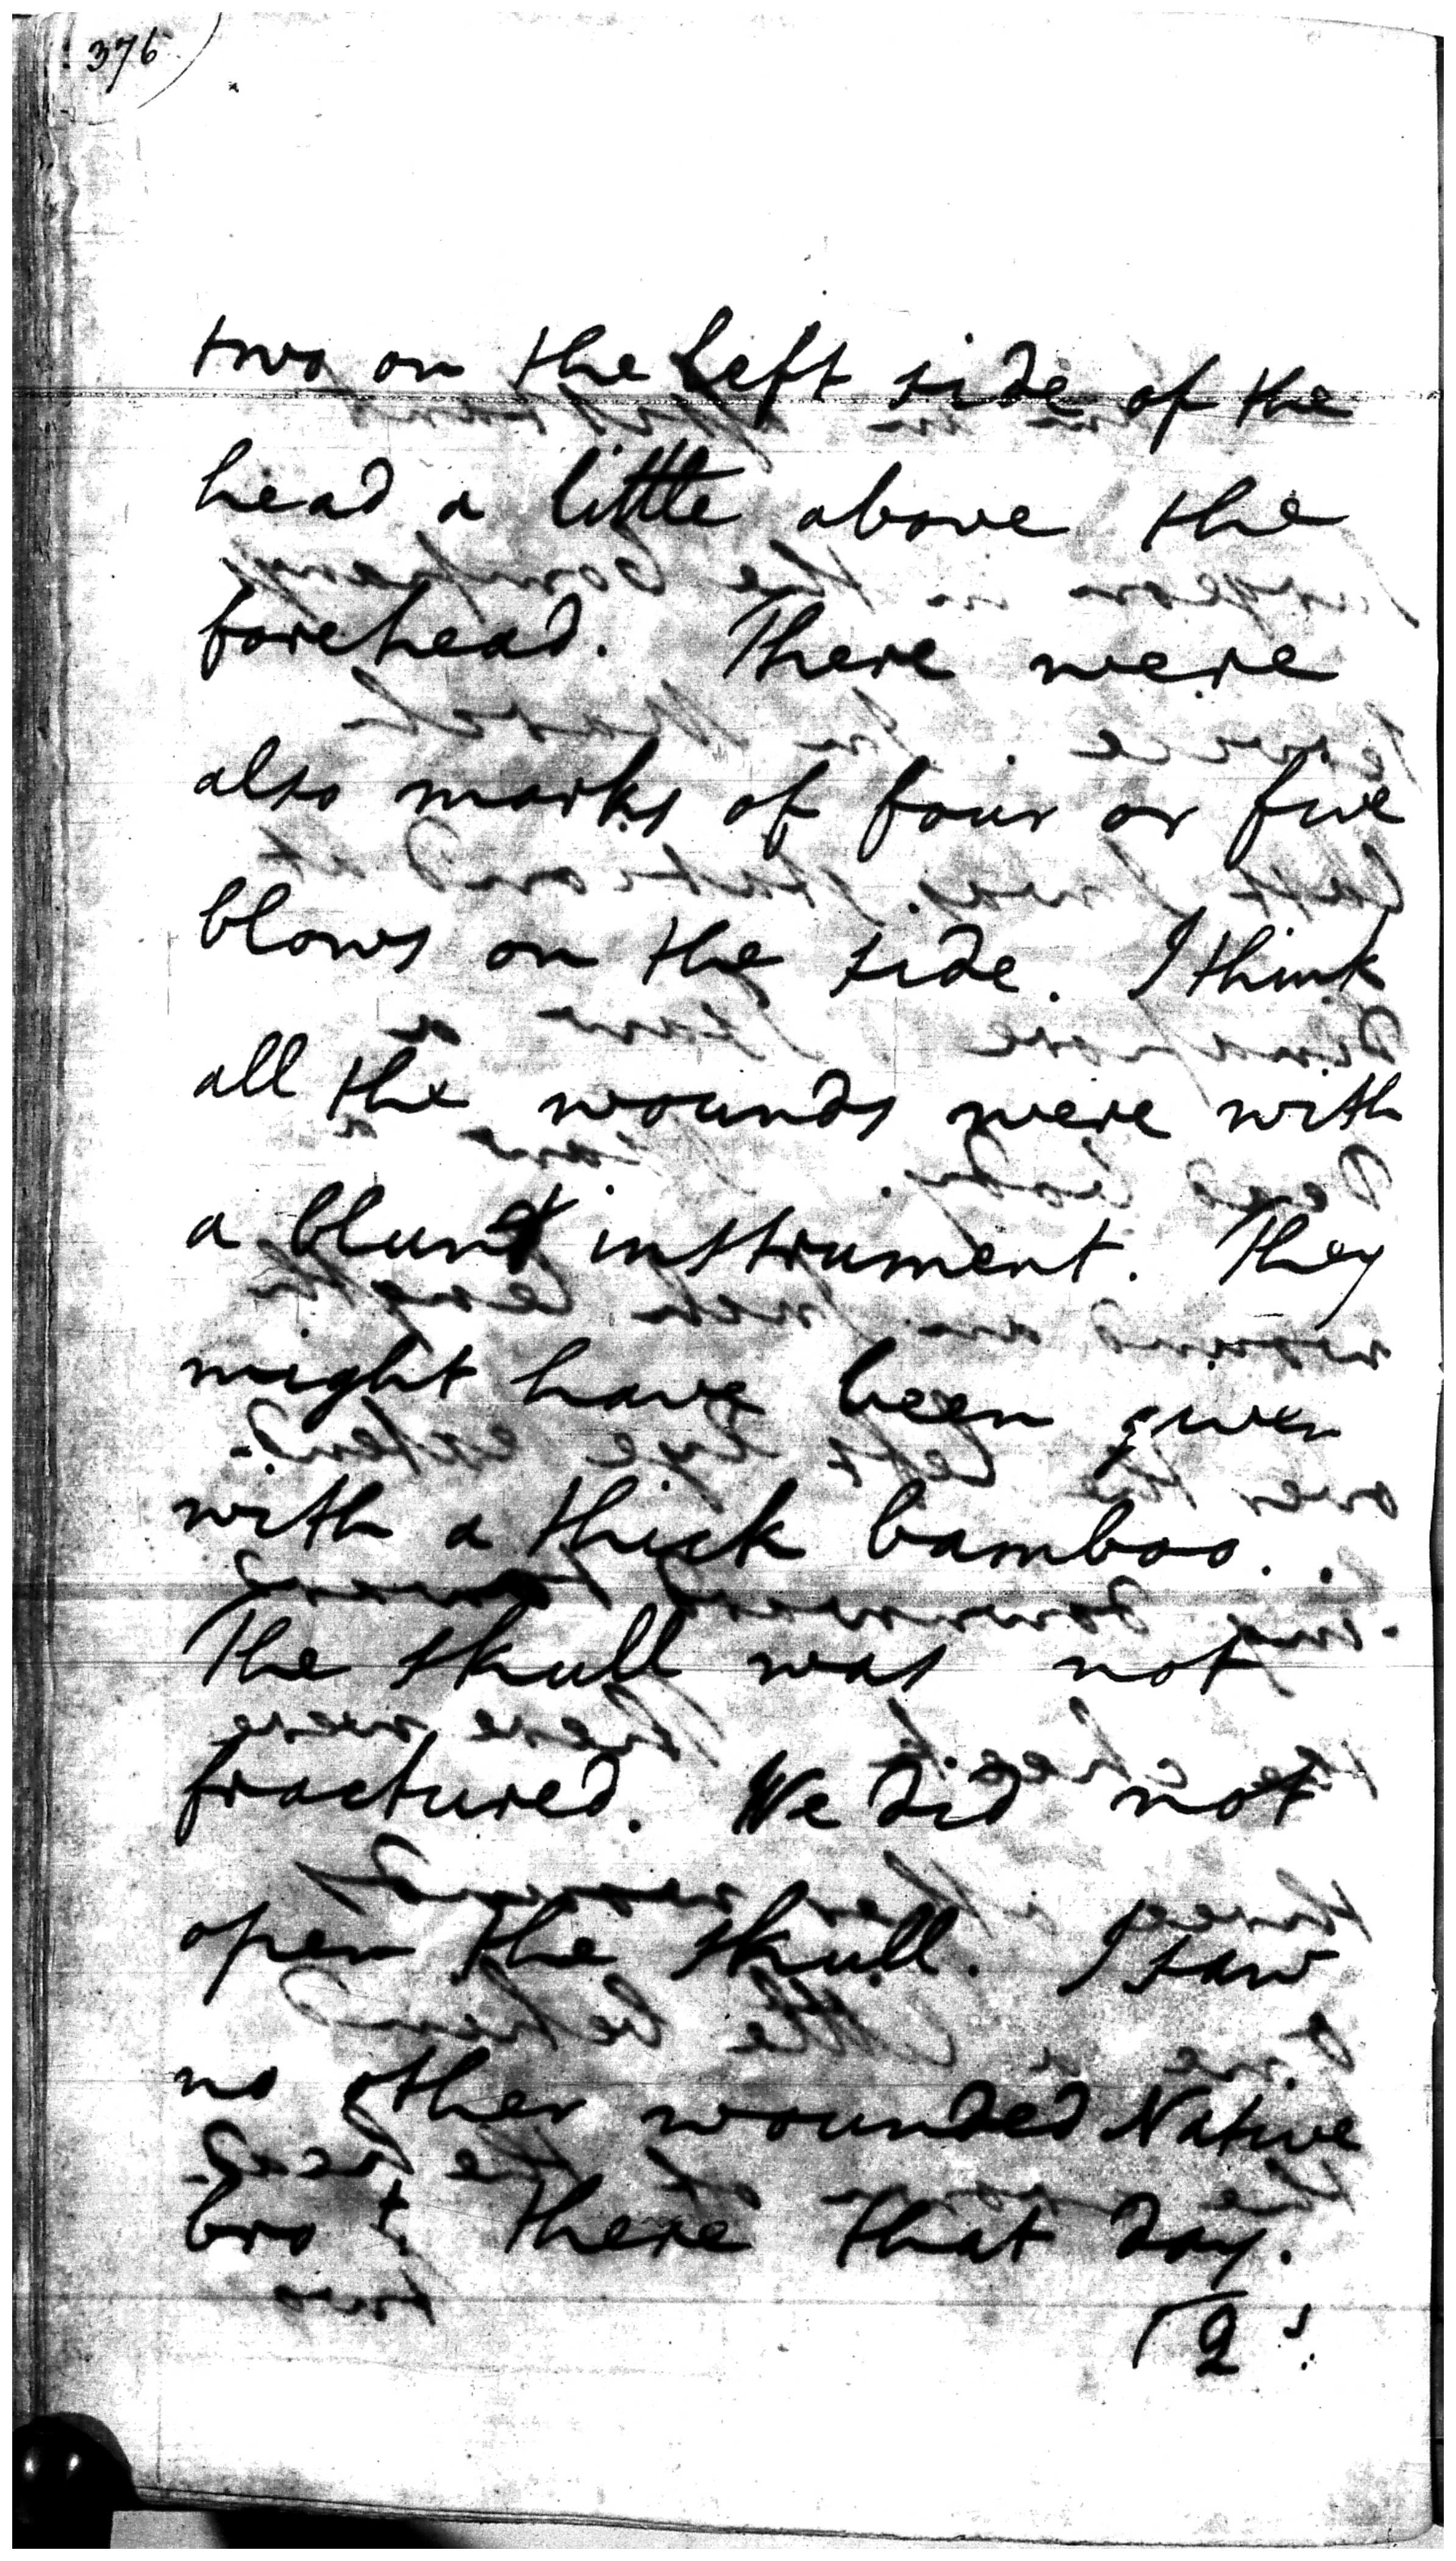 376
two on the left side of the
head a little above the
forehead. There were
also marks of four or five
blows on the side. I think
all the wounds were with
a blunt instrument. They
might have been given
with a thick bamboo.
The skull was not
fractured. We did not
open the skull. I saw
no other wounded Native
brot there that day.
Q